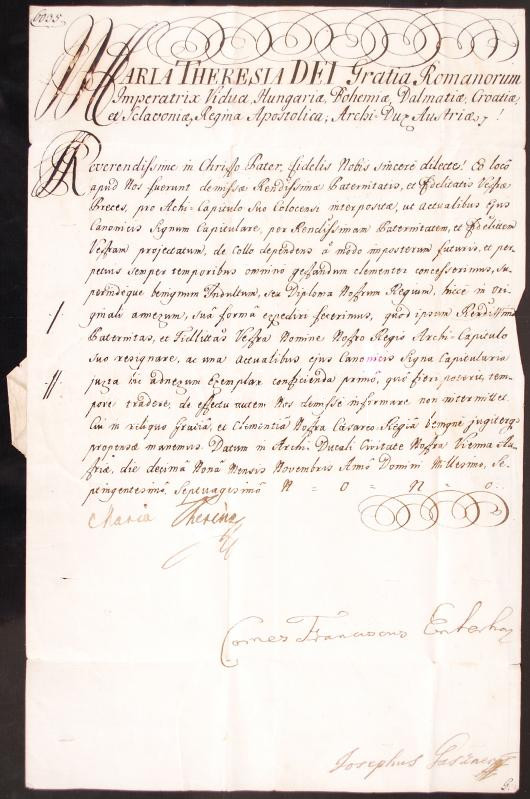 MARIA THERESIA DEI Gratia Romanorum
Imperatrix Vidua, Hungariæ, Bohemiæ, Dalmatiæ, Croatiæ,
et Sclavoniæ, Regina Apostolica; Archi-Dux Austriæ !
Reverendissime in Christo Pater, Fidelis Nobis sincere dilecte! Eo loco
apud Nos fuerunt demissæ Rendissimæ Paternitatis, et Fidelitatis Vestræ
Preces, pro Achi-Capitulo Suo Colocensi interpositæ, ut actualibus ejus
Canonicis Signum Capitulare, per Rendissimam Paternitatem, et
Vestram projectatum, de collo dependens à modo imposterum futuris, et per
petuis semper temporibus omnino gestandum clementer concesserimus, su
perindeque benignum Indultum, seu Diploma Nostrum Regium, hicce in ori
ginali annexum, suâ formâ expediri fecerimus, quod ipsum
Paternitas, et Vestra Nomine Nostro Regio Archi-Capitulo
Suo resignare, ac una actualibus ejus Canonicis Signa Capitularia
juxta hic adnexum Exemplar conficienda primô, quô fieri poterit, tem-
pore tradere, de effectu autem Nos demisse informare non intermittet.
Cui in reliquo Gratiâ, et Clementiâ Nostra Cæsareo-Regiâ benigne jugiterq
propensæ manemus. Datum in Archi-Ducali Civitate Nostra Vienna Au-
striæ, die decima Nona Mensis Novembris Anno Domini Millesimo, Se-
ptingentesimo, Septuagesimo N = O = N = O.
Maria Theresia
Comes Franciscus Esterhazy
Josephus